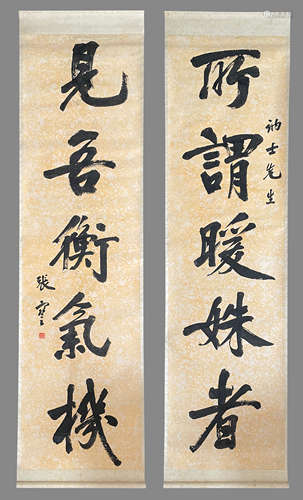 所謂暖姝者
訥士先生
見吾衡氣機
張謇